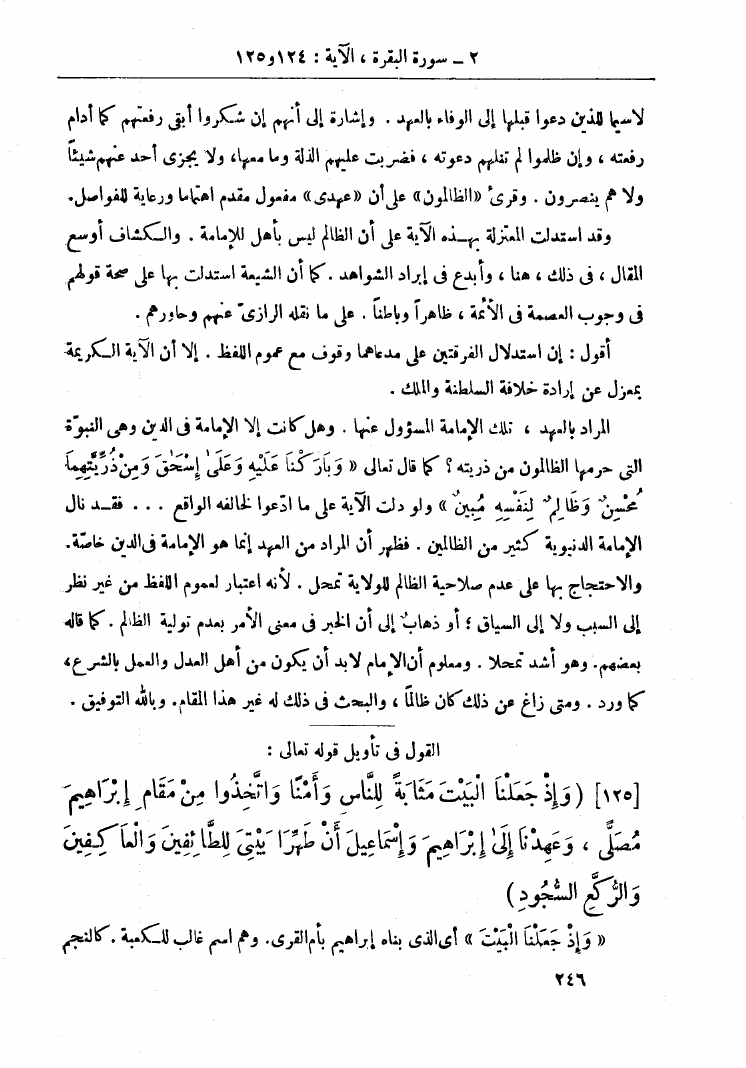 ٢ – سورة البقرة ، الآية : ١٢٤و١٢٥
لاسيما للذين دعوا قبلها إلى الوفاء بالعهد . وإشارة إلى أنهم إن شكروا أبقى رفعتهم كما أدام
رفعته ، وإن ظلموا لم تنلهم دعوته ، فضربت عليهم الذلة وما معها، ولا يجزى أحد عنهم شيئاً
ولا هم ينصرون . وقرئ «الظالمون» على أن «عهدى» مفعول مقدم اهتماما ورعاية للفواصل.
وقد استدلت المعتزلة بهذه الآية على أن الظالم ليس بأهل للإمامة . والكشاف أوسع
المقال ، فى ذلك ، هنا ، وأبدع فى إيراد الشواهد . كما أن الشيعة استدلت بها على صحة قولهم
فى وجوب العصمة فى الأئمة ، ظاهراً وباطناً . على ما نقله الرازىّ عنهم وحاورهم .
أقول : إن استدلال الفرقتين على مدعاهما وقوف مع عموم اللفظ . إلا أن الآية الكريمة
بمعزل عن إرادة خلافة السلطنة والملك .
المراد بالعهد ، تلك الإمامة المسؤول عنها . وهل كانت إلا الإمامة فى الدين وهى النبوّة
التى حرمها الظالمون من ذريته ؟ كما قال تعالى « وَبَارَكْنَا عَلَيْهِ وَعَلَىٰ إِسْحَقَ وَمِنْ ذُرِّيَّتِهِمَا
مُحْسِنٌ وَظَالِمٌ لِنَفْسِهِ مُبِينٌ » ولو دلت الآية على ما ادّعوا لخالفه الواقع . . . فقد نال
الإمامة الدنيوية كثير من الظالمين . فظهر أن المراد من العهد إنما هو الإمامة فى الدين خاصّة.
والاحتجاج بها على عدم صلاحية الظالم للولاية تمحل . لأنه اعتبار لعموم اللفظ من غير نظر
إلى السبب ولا إلى السياق ؛ أو ذهابٌ إلى أن الخبر فى معنى الأمر بعدم تولية الظالم . كما قاله
بعضهم. وهو أشد تمحلا . ومعلوم أن الإمام لابد أن يكون من أهل العدل والعمل بالشرع،
كما ورد . ومتى زاغ عن ذلك كان ظالماً ، والبحث فى ذلك له غير هذا المقام. وبالله التوفيق .
القول فى تأويل قوله تعالى :
[١٢٥] (وَإِذْ جَعَلْنَا الْبَيْتَ مَثَابَةً لِلنَّاسِ وَأَمْنًا وَاتَّخِذُوا مِنْ مَقَامِ إِبْرَاهِيمَ
مُصَلًّى ، وَعَهِدْنَا إِلَىٰ إِبْرَاهِيمَ وَإِسْمَاعِيلَ أَنْ طَهِّرَا بَيْتِىَ لِلطَّائِفِينَ وَالْعَاكِفِينَ
وَالرُّكَّعِ السُّجُودِ)
« وَإِذْ جَعَلْنَا الْبَيْتَ » أى الذى بناه إبراهيم بأم القرى. وهو اسم غالب للكعبة . كالنجم
٢٤٦